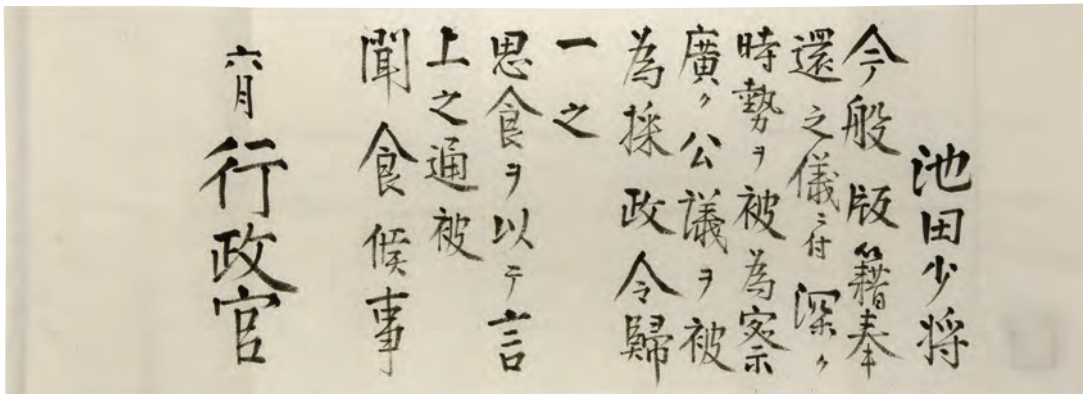 池田少将
今般版籍奉
還之儀ニ付深ク
時勢ヲ被為察
廣ク公議ヲ被
為採政令歸
一之
思食ヲ以テ言
上之通被
聞食候事
六月行政官